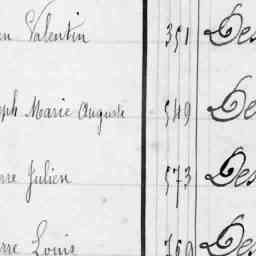 en Valentin 351 Des
eph Marie Auguste 549 De
rre Julien 573 Des
rre Louis 760 Des